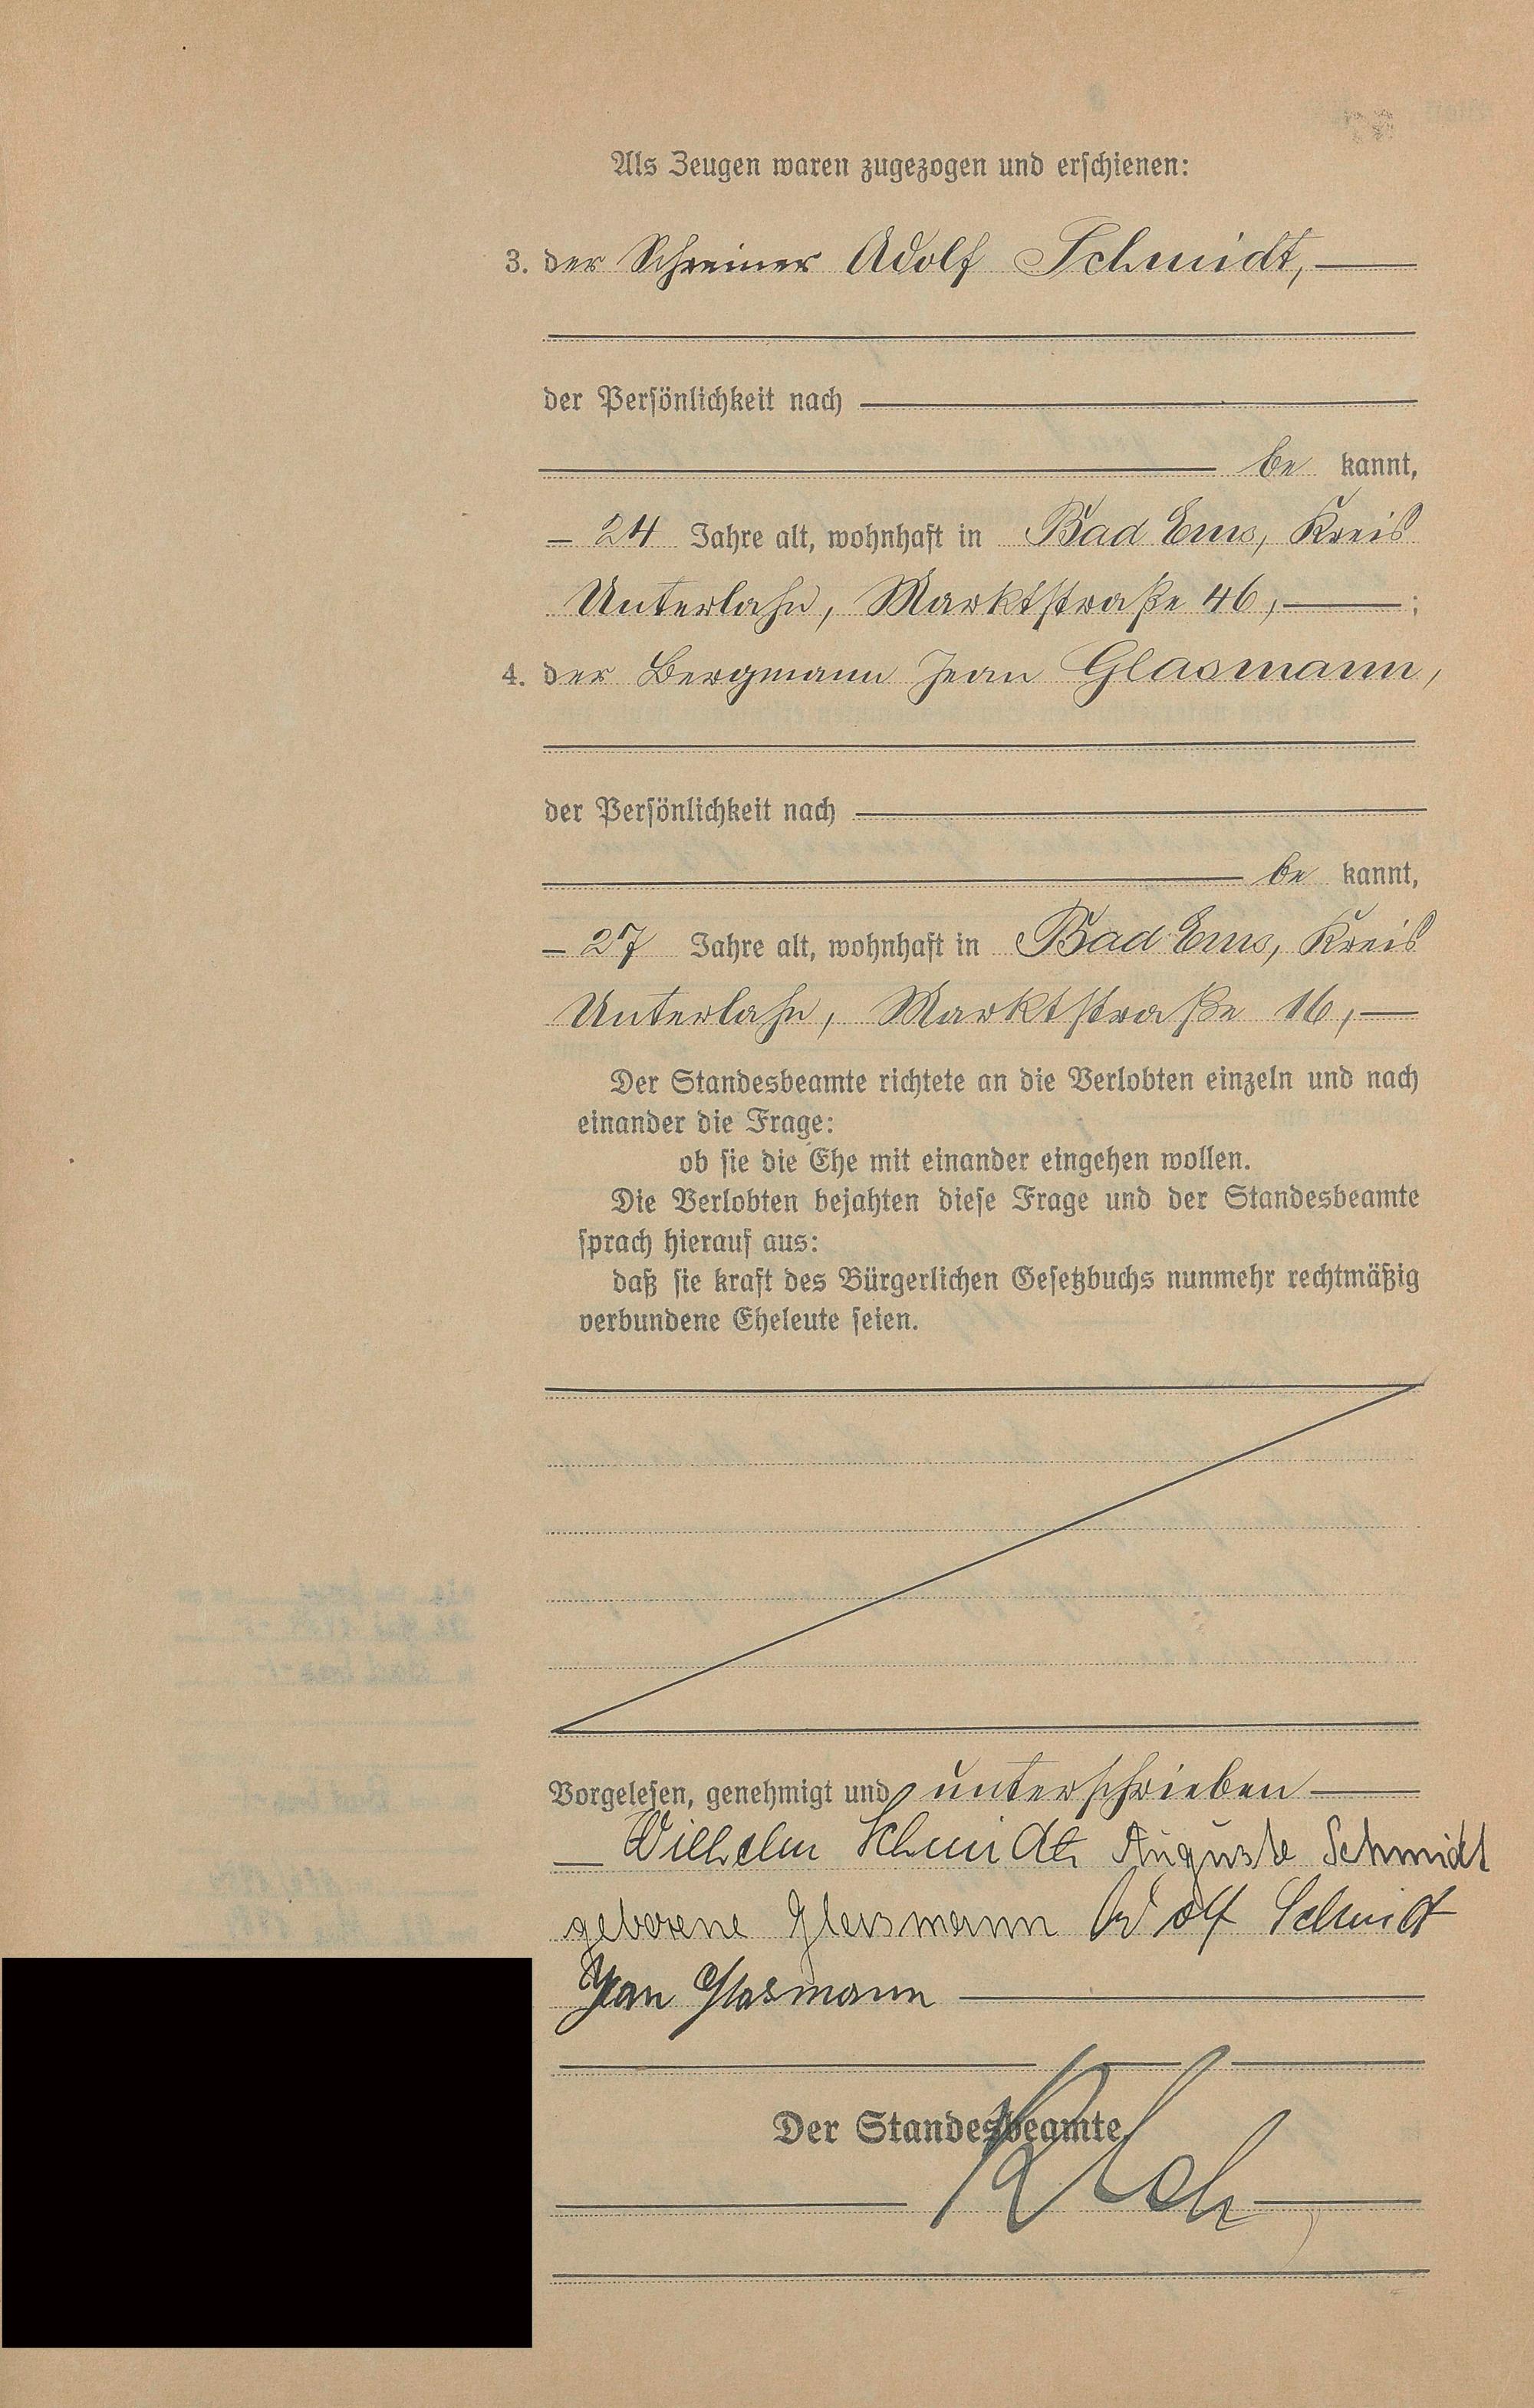 Als Zeugen waren zugezogen und erschienen:
3. der Schreiner Adolf Schmidt,
der Persönlichkeit nach
be kannt,
24 Jahre alt, wohnhaft in Bad Ems, Kreis
Unterlahn, Marktstraße 46, ;
4. der Bergmann Jean Glasmann,
der Persönlichkeit nach
be kannt,
27 Jahre alt, wohnhaft in Bad Ems, Kreis
Unterlahn, Marktstraße 16,
Der Standesbeamte richtete an die Verlobten einzeln und nach
einander die Frage:
ob sie die Ehe mit einander eingehen wollen.
Die Verlobten bejahten diese Frage und der Standesbeamte
sprach hierauf aus:
daß sie kraft des Bürgerlichen Gesetzbuchs nunmehr rechtmäßig
verbundene Eheleute seien.
Vorgelesen, genehmigt und unterschrieben
Wilhelm Schmidt Auguste Schmidt
geborene Glasmann Adolf Schmidt
Jean Glasmann
Der Standesbeamte.